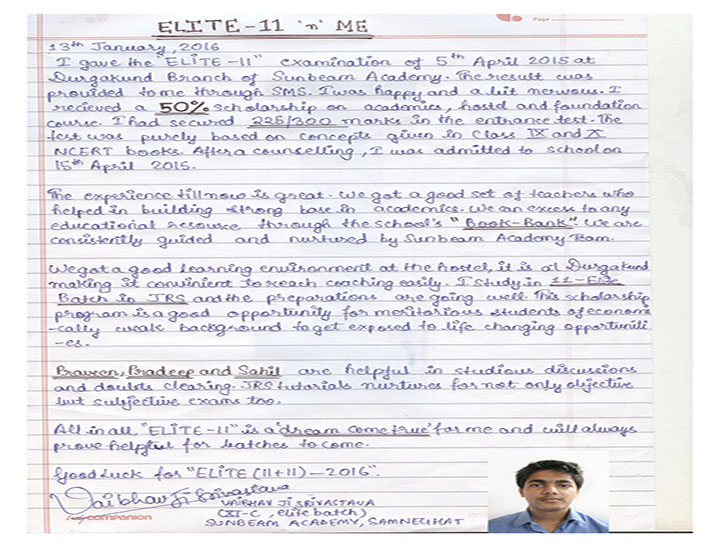 ELITE-11 'n' ME
Page
13th January, 2016
I gave the "ELITE-11" examination of 5th April 2015 at
Durgakund Branch of Sunbeam Academy. The result was
provided to me through SMS. I was happy and a bit nervous. I
recieved a 50% scholarship on academics, hostel and foundation
course. I had secured 225/300 marks in the entrance test. The
test was purely based on concepts given in Class IX and X
NCERT books. After a counselling, I was admitted to school on
15th April 2015.
The experience till now is great. We got a good set of teachers who
helped in building strong base in academics. We an excess to any
educational resource through the school's "Book-Bank". We are
consistently guided and nurtured by Sunbeam Academy Team.
We got a good learning environment at the hostel, it is at Durgakund
making it convinient to reach coaching easily. I study in 11-Elite
Batch in JRS and the preparations are going well. This scholarship
program is a good opportunity for meritorious students of econom
-cally weak background to get exposed to life changing opportuniti
-es.
Praveen, Pradeep and Sahil are helpful in studious discussions
and doubts clearing. JRS tutorials nurtures for not only objective
but subjective exams too.
All in all, "ELITE-11" is a 'dream come true' for me and will always
prove helpful for batches to come.
Good Luck for "ELITE (11+11)-2016".
Vaibhav Ji Srivastava
VAIBHAV JI SRIVASTAVA
(XI-C, elite batch)
companion
SUNBEAM ACADEMY, SAMNEGHAT